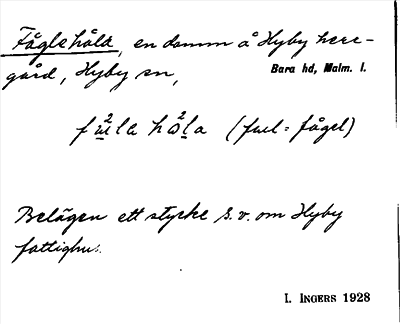 Fåglehåla, en damm å Hyby herr-
gård, Hyby sn,
Bara hd, Malm. l.
fu²la hå²la (ful = fågel)
Belägen ett stycke s.v. om Hyby
fattighus.
I. INGERS 1928